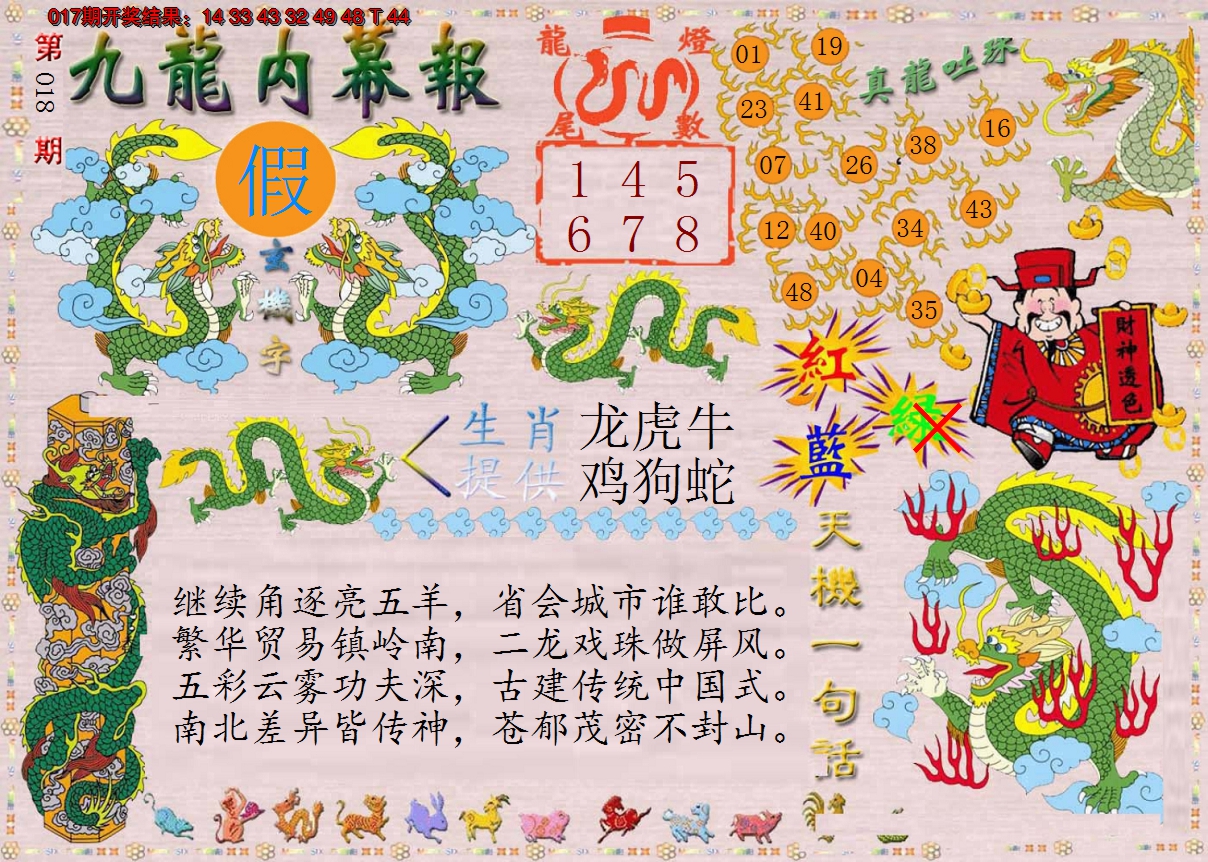 017期开奖结果：14 33 43 32 49 48 T 44
第018期
九龍内幕報
假
玄機字
龍燈尾數
1 4 5
6 7 8
真龍吐珠
01 19
23 41
07 26 38 16
12 40 34 43
48 04 35
財神透色
紅
綠
藍
生肖提供
龙虎牛
鸡狗蛇
天機一句话
继续角逐亮五羊，省会城市谁敢比。
繁华贸易镇岭南，二龙戏珠做屏风。
五彩云雾功夫深，古建传统中国式。
南北差异皆传神，苍郁茂密不封山。